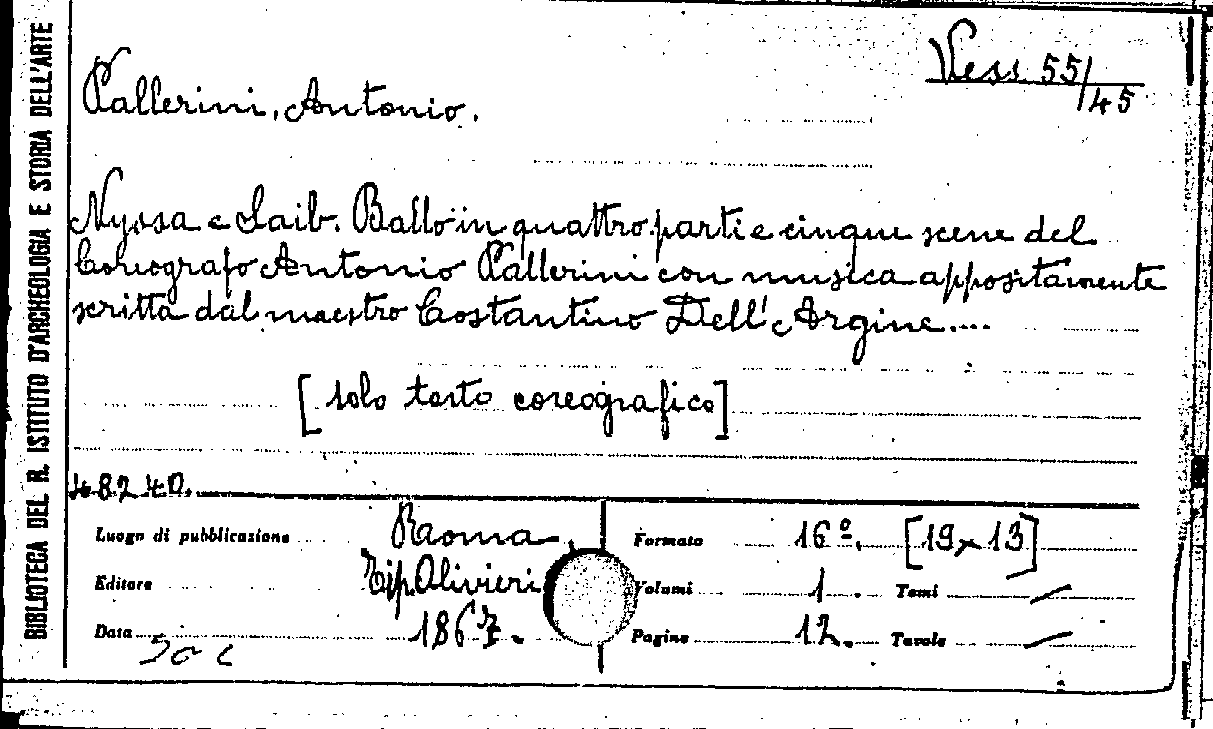 BIBLIOTECA DEL R. ISTITUTO D'ARCHEOLOGIA E STORIA DELL'ARTE
Vess 55/45
Pallerini, Antonio.
Nyssa e Saib. Ballo in quattro parti e cinque scene del
Coreografo Antonio Pallerini con musica appositamente
scritta dal maestro Costantino Dell'Argine....
[solo testo coreografico]
48240.
Luogo di pubblicazione Roma.
Editore Tip. Olivieri
Data 1867.
Formato 16º. [19x13]
Volumi 1. Tomi /
Pagine 12. Tavole /